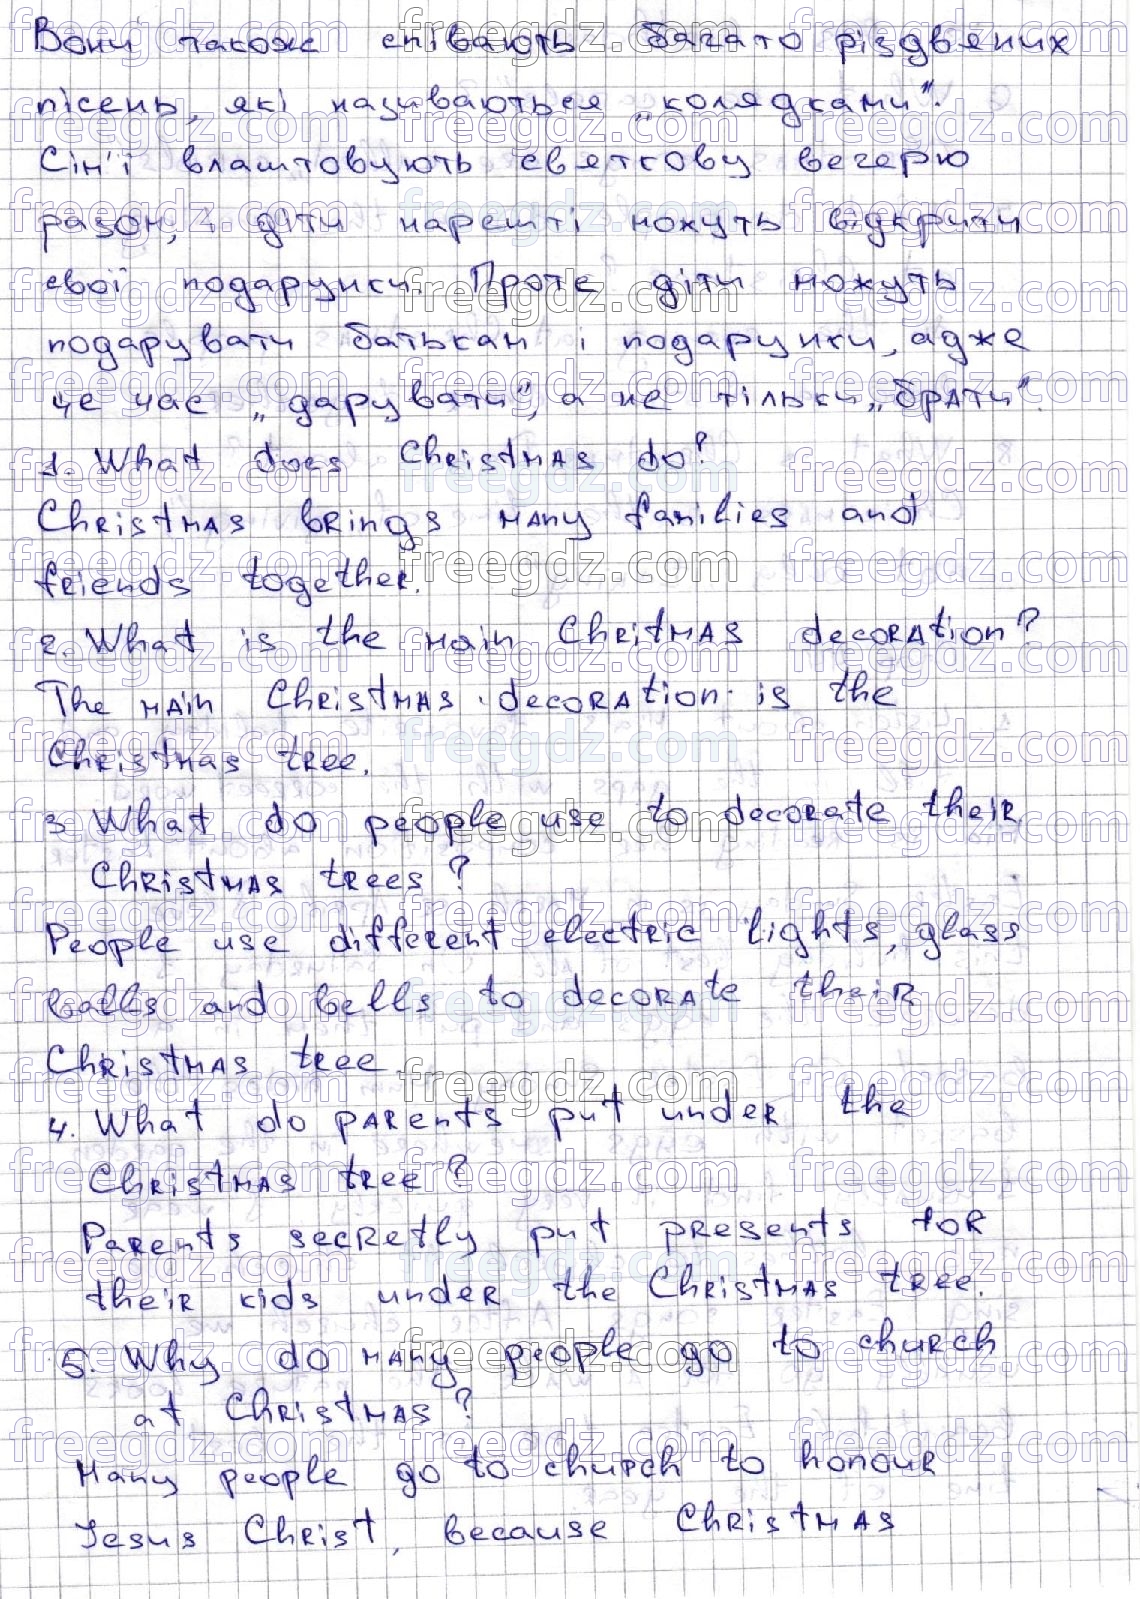 Вони також співають багато різдвяних
пісень, які називаються „колядками".
Сім'ї влаштовують святкову вечерю
разом, і діти нарешті можуть відкрити
свої подарунки. Проте діти можуть
подарувати батькам і подарунки, адже
це час „дарувати", а не тільки „брати".
1. What does Christmas do?
Christmas brings many families and
friends together.
2. What is the main Chritmas decoration?
The main Christmas decoration is the
Christmas tree.
3 What do people use to decorate their
Christmas trees?
People use different electric lights, glass
balls and bells to decorate their
Christmas tree.
4. What do parents put under the
Christmas tree?
Parents secretly put presents for
their kids under the Christmas tree.
5. Why do many people go to church
at Christmas?
Many people go to church to honour
Jesus Christ, because Christmas